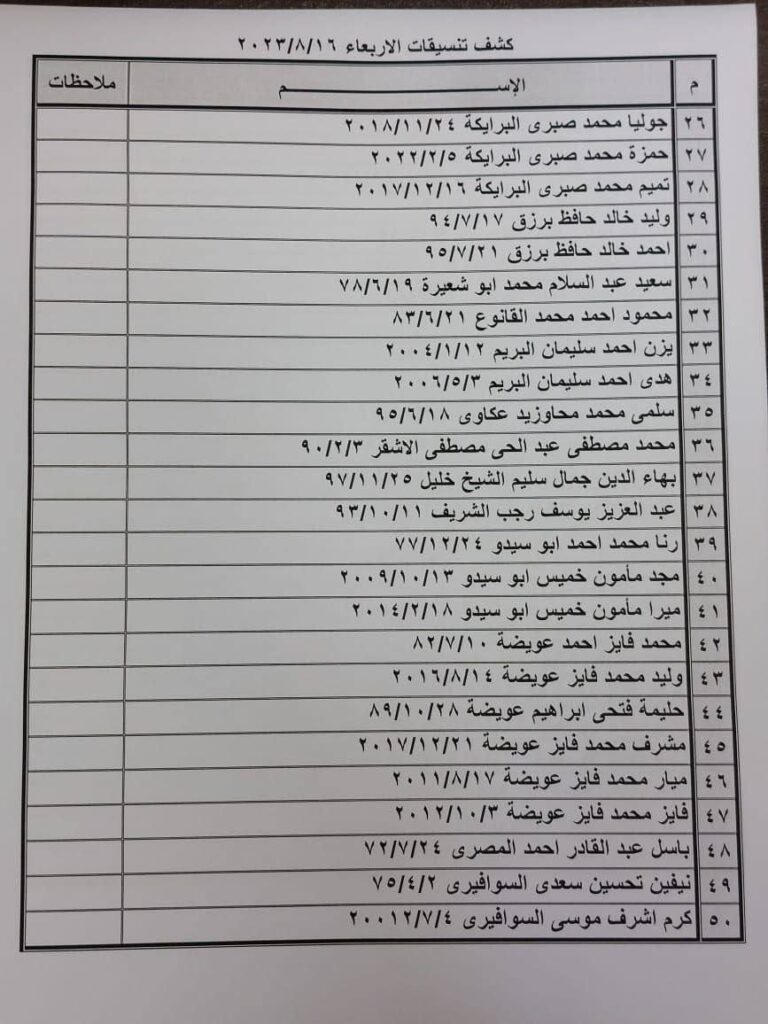 كشف تنسيقات الاربعاء ٢٠٢٣/٨/١٦
م الإســـــم ملاحظات
٢٦ جوليا محمد صبرى البرايكة ٢٠١٨/١١/٢٤
٢٧ حمزة محمد صبرى البرايكة ٢٠٢٢/٢/٥
٢٨ تميم محمد صبرى البرايكة ٢٠١٧/١٢/١٦
٢٩ وليد خالد حافظ برزق ٩٤/٧/١٧
٣٠ احمد خالد حافظ برزق ٩٥/٧/٢١
٣١ سعيد عبد السلام محمد ابو شعيرة ٧٨/٦/١٩
٣٢ محمود احمد محمد القانوع ٨٣/٦/٢١
٣٣ يزن احمد سليمان البريم ٢٠٠٤/١/١٢
٣٤ هدى احمد سليمان البريم ٢٠٠٦/٥/٣
٣٥ سلمى محمد محاوزيد عكاوى ٩٥/٦/١٨
٣٦ محمد مصطفى عبد الحى مصطفى الاشقر ٩٠/٢/٣
٣٧ بهاء الدين جمال سليم الشيخ خليل ٩٧/١١/٢٥
٣٨ عبد العزيز يوسف رجب الشريف ٩٣/١٠/١١
٣٩ رنا محمد احمد ابو سيدو ٧٧/١٢/٢٤
٤٠ مجد مأمون خميس ابو سيدو ٢٠٠٩/١٠/١٣
٤١ ميرا مأمون خميس ابو سيدو ٢٠١٤/٢/١٨
٤٢ محمد فايز احمد عويضة ٨٢/٧/١٠
٤٣ وليد محمد فايز عويضة ٢٠١٦/٨/١٤
٤٤ حليمة فتحى ابراهيم عويضة ٨٩/١٠/٢٨
٤٥ مشرف محمد فايز عويضة ٢٠١٧/١٢/٢١
٤٦ ميار محمد فايز عويضة ٢٠١١/٨/١٧
٤٧ فايز محمد فايز عويضة ٢٠١٢/١٠/٣
٤٨ باسل عبد القادر احمد المصرى ٧٢/٧/٢٤
٤٩ نيفين تحسين سعدى السوافيرى ٧٥/٤/٢
٥٠ كرم اشرف موسى السوافيرى ٢٠٠١٢/٧/٤